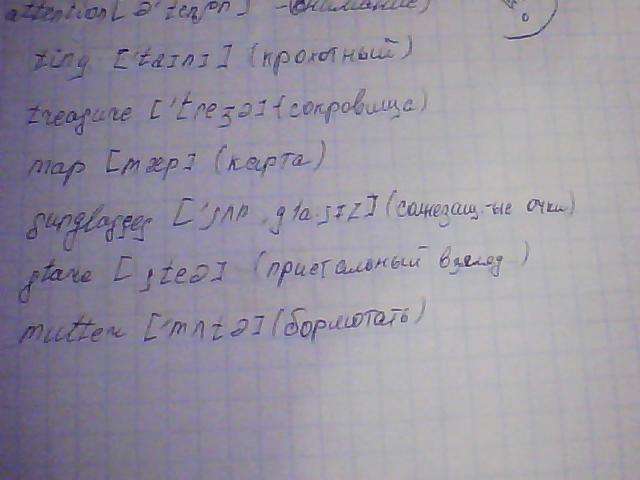 attention [ə'tenʃən] - (внимание)
tiny ['taɪnɪ] (крохотный)
treasure ['treʒə] (сокровища)
map [mæp] (карта)
sunglasses ['sʌn,gla:sɪz] (солнезащ-тые очки)
stare [steə] (пристальный взгляд)
mutter ['mʌtə] (бормотать)